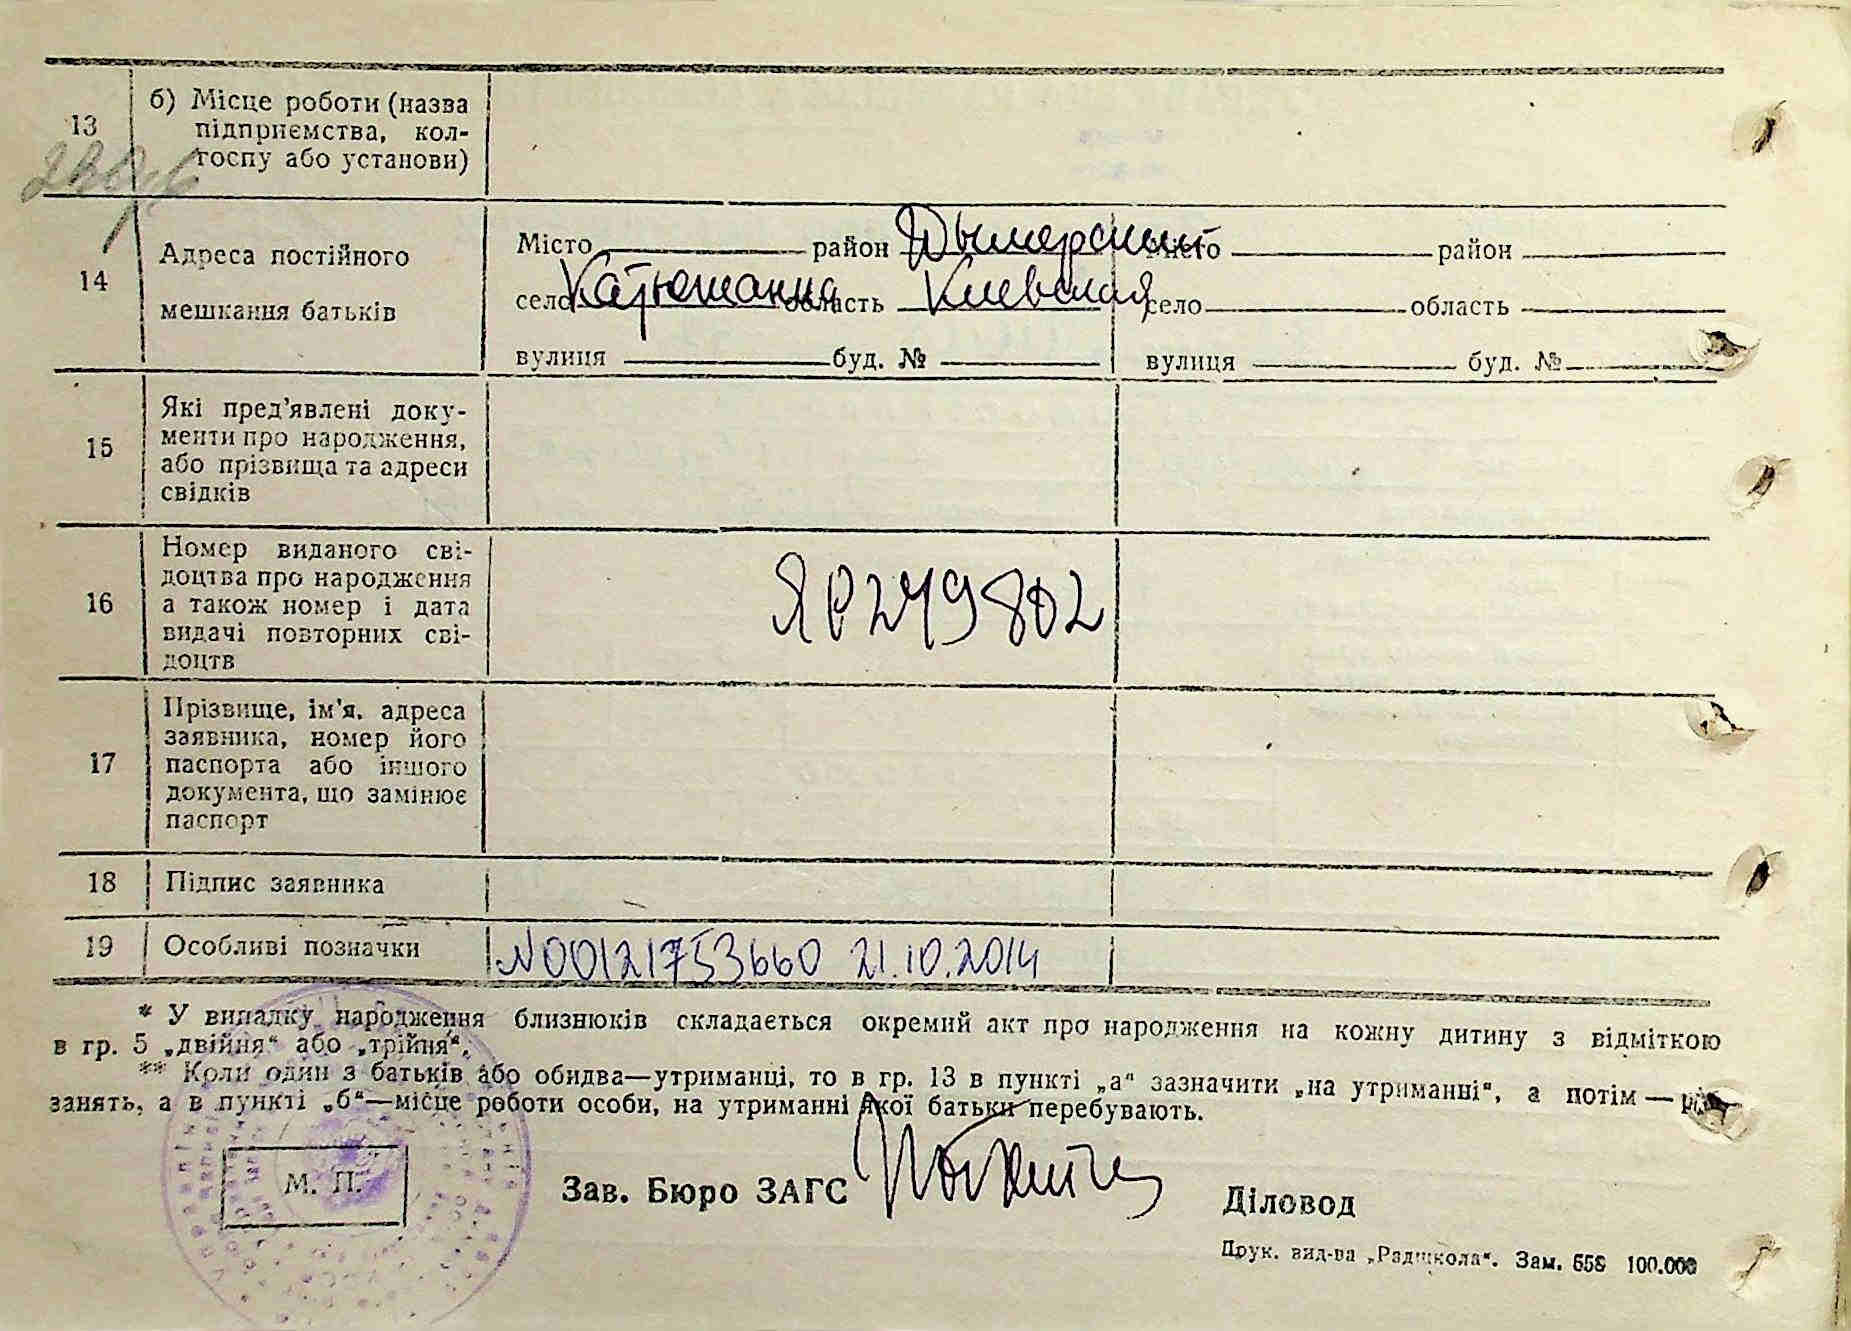 13
б) Місце роботи (назва
підприємства, кол-
госпу або установи)
14
Адреса постійного
мешкання батьків
Місто район Дымерский
село Катюжанка область Киевская
вулиця буд. №
Місто район
село область
вулиця буд. №
15
Які пред'явлені доку-
менти про народження,
або прізвища та адреси
свідків
16
Номер виданого сві-
доцтва про народження
а також номер і дата
видачі повторних сві-
доцтв
ЯР 249802
17
Прізвище, ім'я, адреса
заявника, номер його
паспорта або іншого
документа, що замінює
паспорт
18
Підпис заявника
19
Особливі позначки
N00121753660 21.10.2014
* У випадку народження близнюків складається окремий акт про народження на кожну дитину з відміткою
в гр. 5 „двійня“ або „трійня“.
** Коли один з батьків або обидва—утриманці, то в гр. 13 в пункті „а“ зазначити „на утриманні“, а потім —
занять, а в пункті „б“—місце роботи особи, на утриманні якої батьки перебувають.
М. П.
Зав. Бюро ЗАГС
Діловод
Друк. вид-ва „Радшкола“. Зам. 558 100.000